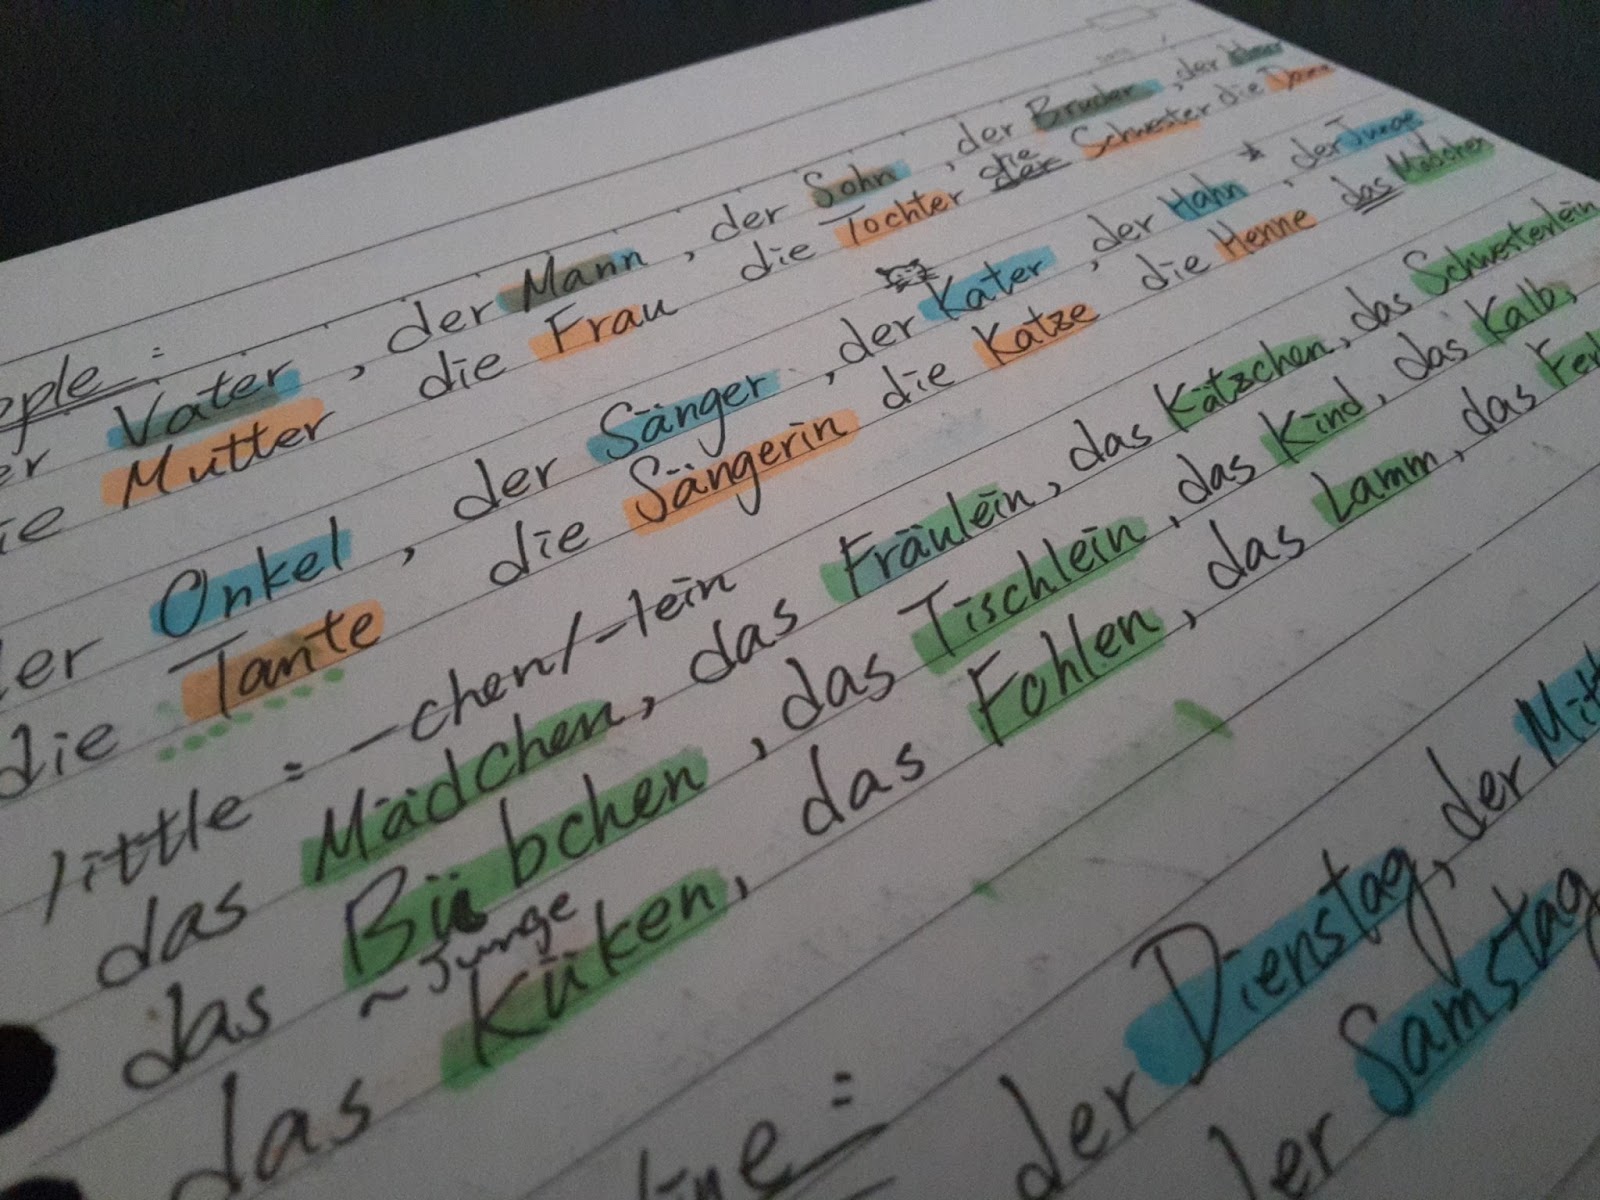 ople :
er Vater, der Mann, der Sohn, der Bruder, der
ie Mutter die Frau die Tochter die der Schwester die
der Onkel, der Sänger, der Kater, der Hahn, der Junge
die Tante die Sängerin die Katze die Henne das Mädchen
little = -chen/-lein
das Mädchen, das Fräulein, das Kätzchen, das Schwesterlein
das Bübchen, das Tischlein, das Kind, das Kalb,
~Junge
das Küken, das Fohlen, das Lamm, das Ferk
ine :
der Dienstag, der Mitt
der Samstag